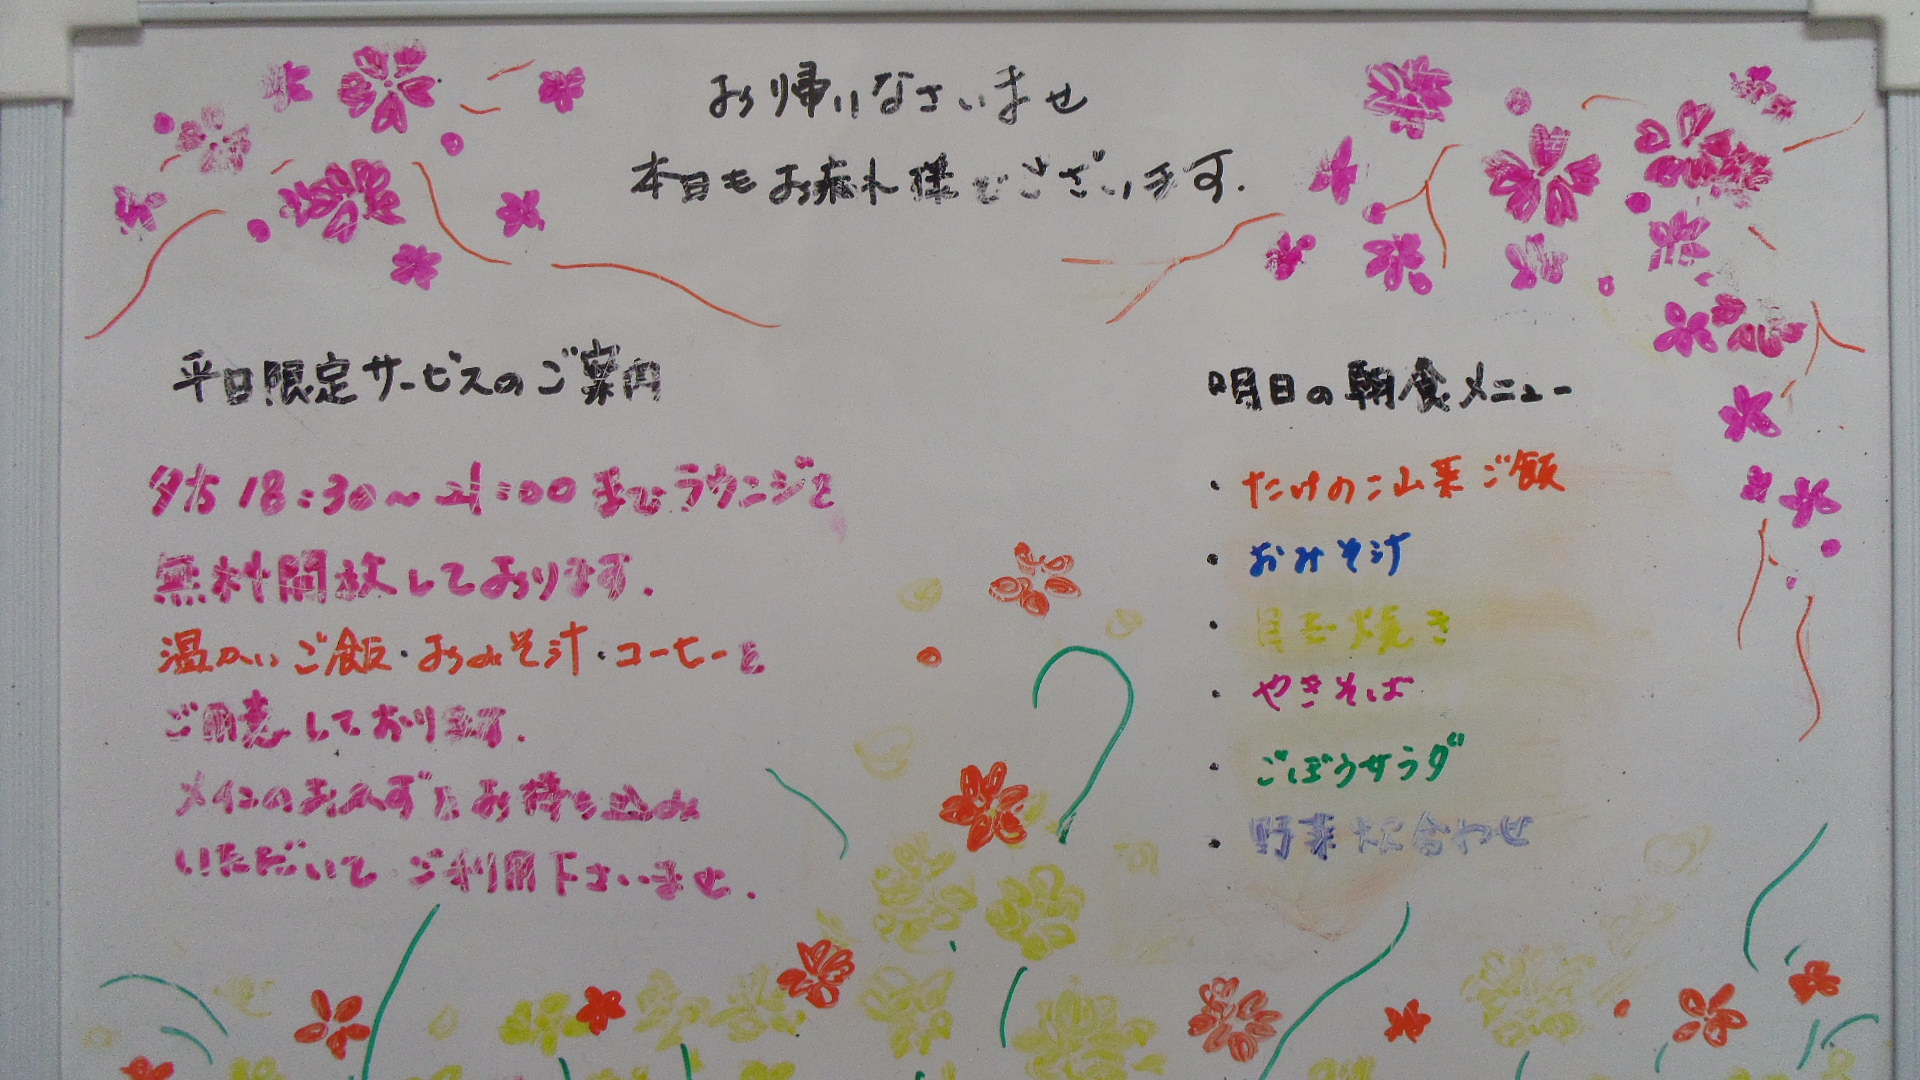 お帰りなさいませ
本日もお疲れ様でございます.
平日限定サービスのご案内
夕方 18:30〜21:00までラウンジを
無料開放しております.
温かいご飯・おみそ汁・コーヒーを
ご用意しております.
メインのおかずをお持ち込み
いただいてご利用下さいませ.
明日の朝食メニュー
・たけのこ山菜ご飯
・おみそ汁
・目玉焼き
・やきそば
・ごぼうサラダ
・野菜炊合わせ